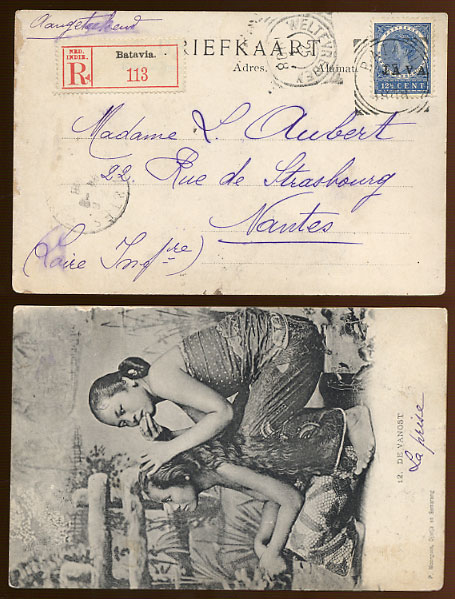 Aangeteekend
NED.
INDIË.
R
Batavia.
113
BRIEFKAART
Adres. Alamat.
WELTEVREDEN
JAVA
12½ CENT
Madame L. Aubert
22 Rue de Strasbourg
Nantes
(Loire Infre)
12. DE VANGST
La prise